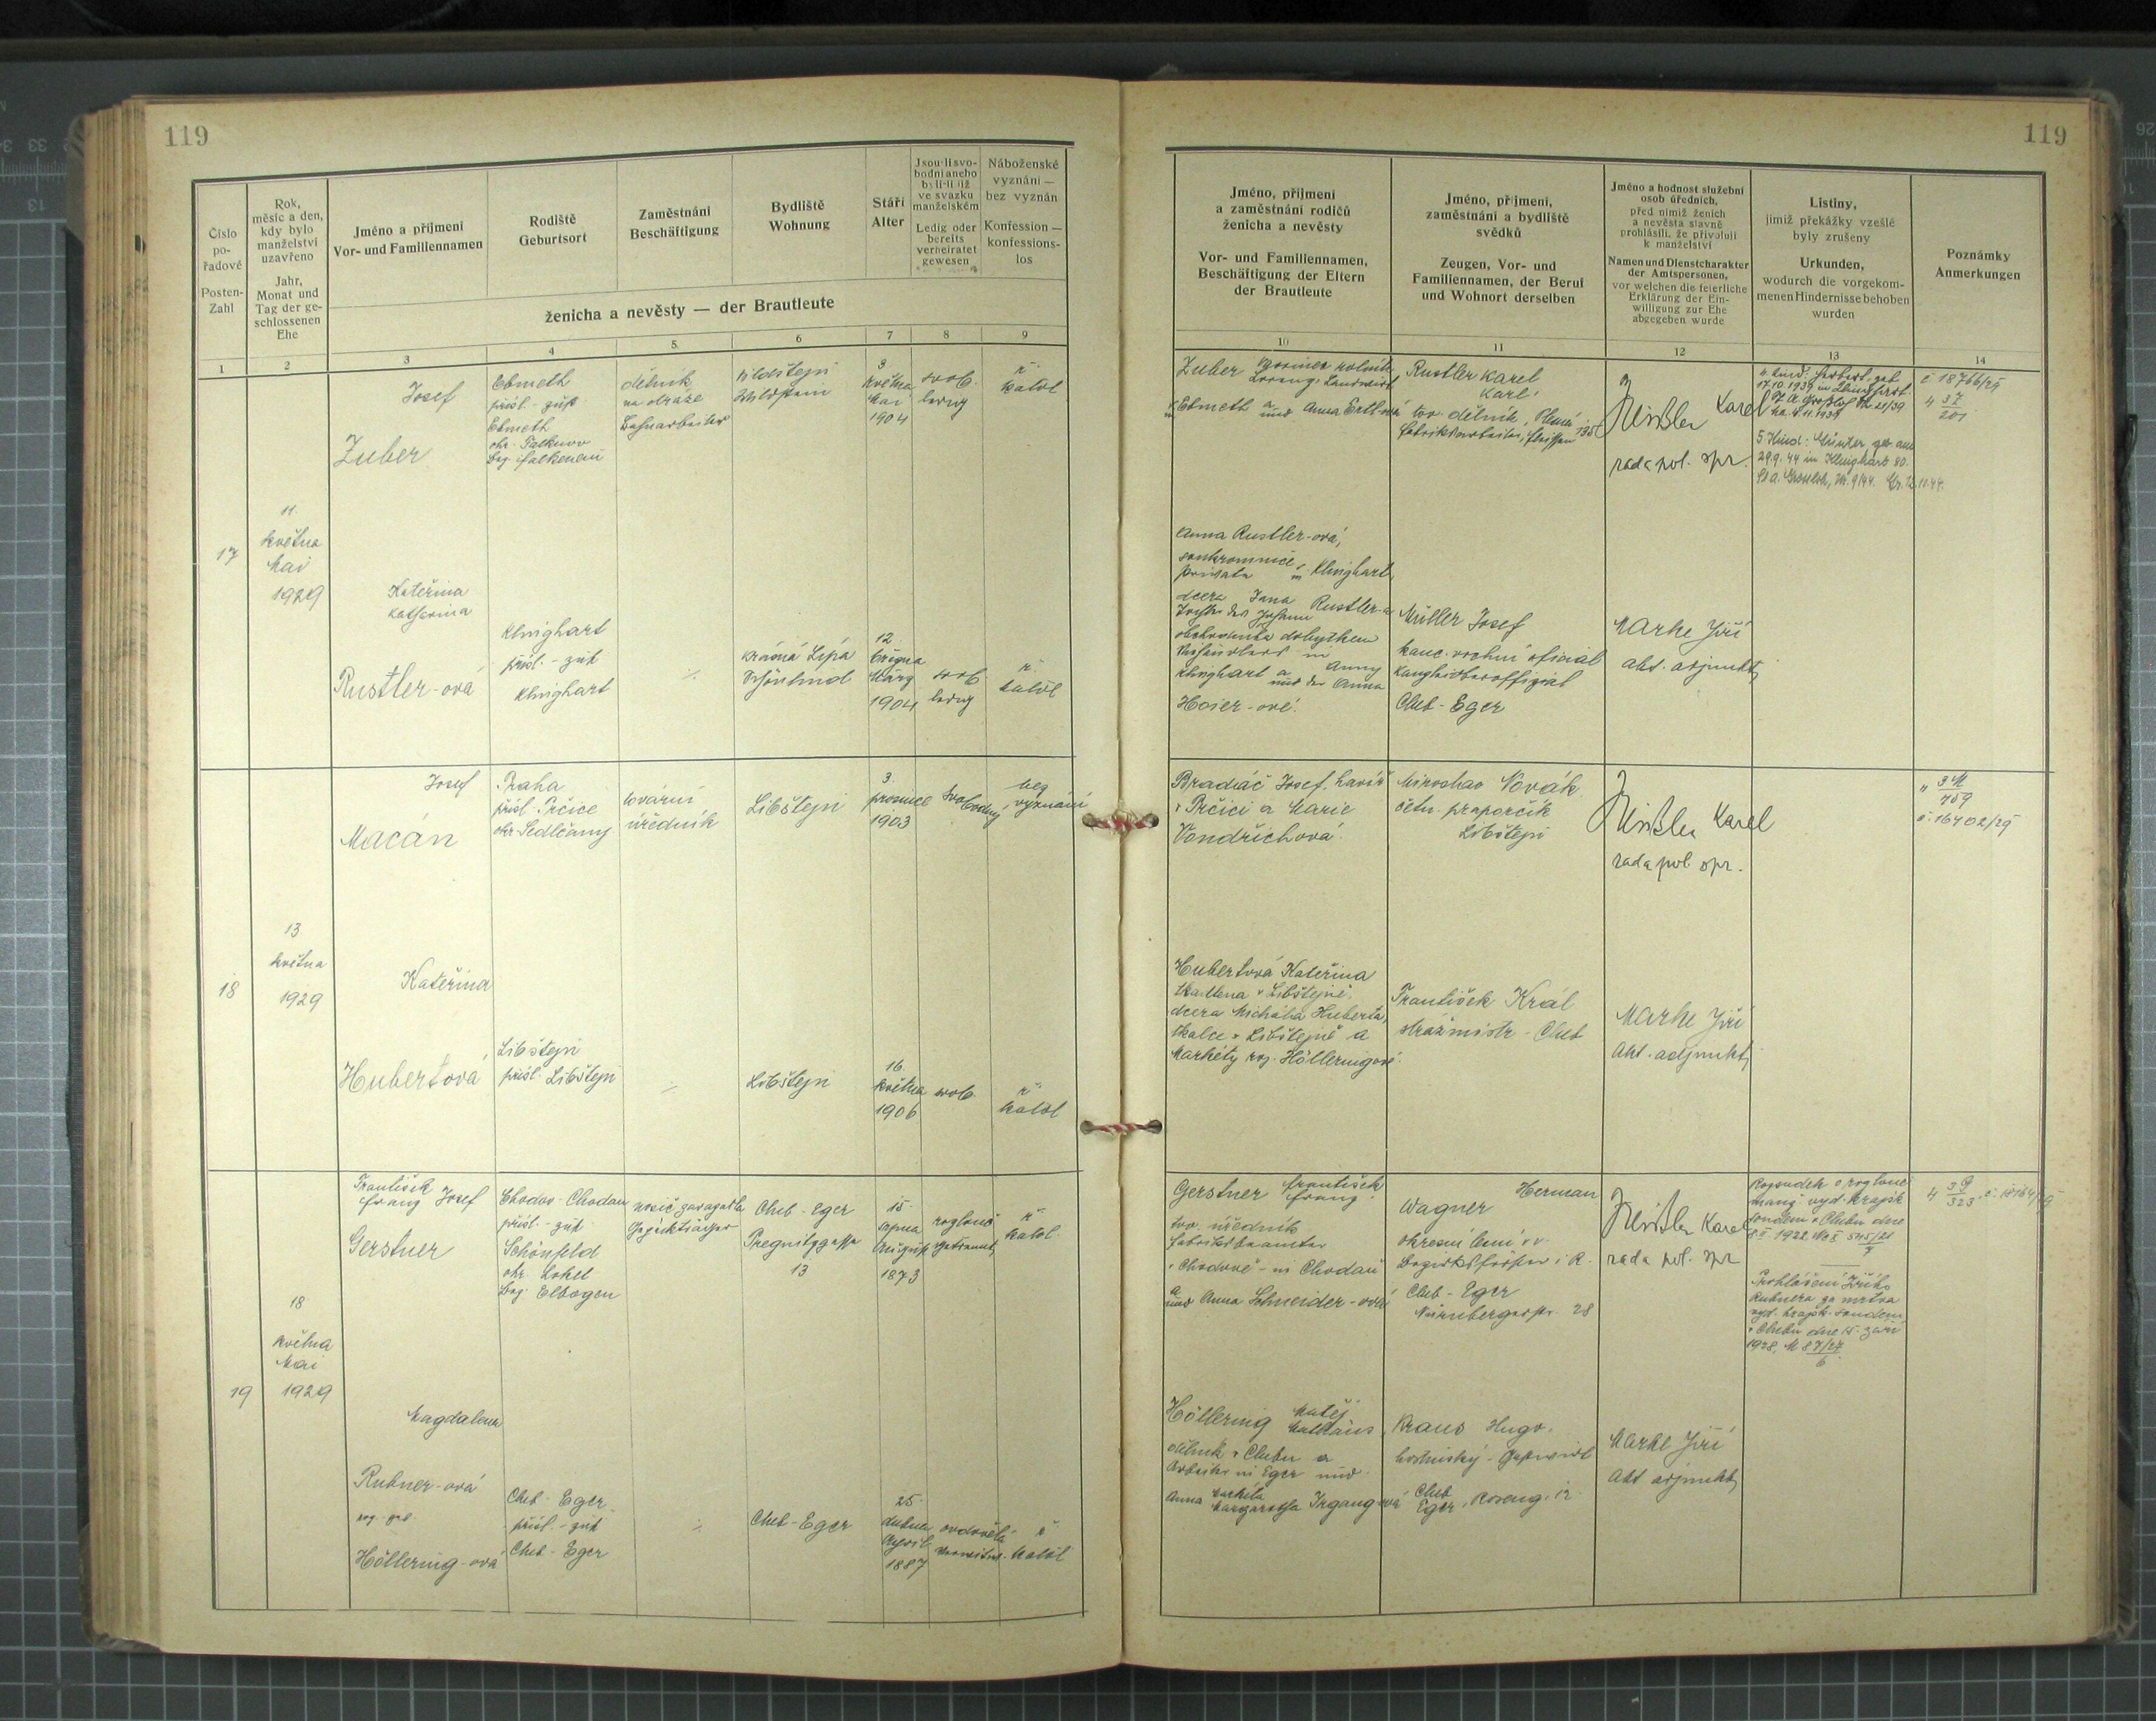 119
119
Číslo
po-
řadové
Posten-
Zahl
Rok,
měsíc a den,
kdy bylo
manželství
uzavřeno
Jahr,
Monat und
Tag der ge-
schlossenen
Ehe
Jméno a příjmení
Vor- und Familiennamen
Rodiště
Geburtsort
Zaměstnání
Beschäftigung
Bydliště
Wohnung
Stáří
Alter
Jsou-li svo-
bodni anebo
byli-li již
ve svazku
manželském
Ledig oder
bereits
verheiratet
gewesen
Náboženské
vyznání —
bez vyznán
Konfession —
konfessions-
los
ženicha a nevěsty — der Brautleute
1 2 3 4 5 6 7 8 9
Jméno, příjmení
a zaměstnání rodičů
ženicha a nevěsty
Vor- und Familiennamen,
Beschäftigung der Eltern
der Brautleute
Jméno, příjmení,
zaměstnání a bydliště
svědků
Zeugen, Vor- und
Familiennamen, der Beruf
und Wohnort derselben
Jméno a hodnost služební
osob úředních,
před nimiž ženich
a nevěsta slavně
prohlásili, že přivolují
k manželství
Namen und Dienstcharakter
der Amtspersonen,
vor welchen die feierliche
Erklärung der Ein-
willigung zur Ehe
abgegeben wurde
Listiny,
jimiž překážky vzešlé
byly zrušeny
Urkunden,
wodurch die vorgekom-
menen Hindernisse behoben
wurden
Poznámky
Anmerkungen
10 11 12 13 14
17
11.
května
Mai
1929
Josef
Zuber
Ebmeth
přísl. - zust
Ebmeth
okr. Falknov
Bez. Falkenau
dělník
na dráze
Bahnarbeiter
Vildštejn
Wildstein
3
května
Mai
1904
svob.
ledig
ř.
katol
Kateřina
Katharina
Rustler-ová
Klinghart
přísl. - zust
Klinghart
Krásná Lípa
Schönlind
12.
března
März
1904
svob
ledig
ř.
katol
Zuber
Lorenz Landwirt
Ebmeth a
und Anna Ertl-ová
Anna Rustler-ová,
soukromnice,
Private in Klinghart,
dcera Jana Rustler-a
obchodníka dobytkem
Klinghart a Anny
und der Anna
Hoier-ové.
Rustler Karel
Karl,
tov. dělník, Plesná
Fabriksarbeiter, Fleissen
Müller Josef
kanc. vrchní oficiál
Kanzleioberoffizial
Cheb - Eger
Karel
rada pol. spr.
Marke Jiří
akt. adjunkt,
4. Kind: Herbert, geb
17.10.1939 in
5. Kind: Günter geb am
29.9.44 in Klinghart 80.
č 18766/29
4 37
201
18
13
května
1929
Josef
Macán
Praha
přísl. Prčice
okr. Sedlčany
tovární
úředník
Libštejn
3.
prosince
1903
svobodný
bez
vyznání
Kateřina
Hubertová
Libštejn
přísl. Libštejn
Libštejn
16.
května
1906
svob.
ř.
katol
Bradáč Josef, havíř
v Prčici a Marie
Vondřichová.
Hubertová Kateřina
tkadlena v Libštejně,
dcera Michala Huberta,
tkalce v Libštejně a
Markéty roz. Hölleringové.
Miroslav Novák
četn. praporčík
Libštejn
František Král
strážmistr - Cheb
Karel
rada pol. spr.
Marke Jiří
Akt. adjunkt,
759
č. 16402/29
19
18
května
Mai
1929
František
Franz Josef
Gerstner
Chodov - Chodau
přísl. - zust
Schönfeld
okr. Loket
Bez. Elbogen
nosič zavazadla
Gepäckträger
Cheb - Eger
13
15.
srpna
August
1873
rozlouč
getrennt,
ř.
katol.
Magdalena
Rubner-ová
roz. geb.
Höllering-ová
Cheb - Eger
přísl. - zust
Cheb - Eger
Cheb - Eger
25.
dubna
April
1887
ovdovělá
verwitw.
ř.
katol
Gerstner František
Franz.
tov. úředník
Fabriksbeamter
v Chodově - in Chodau
a
und Anna Schneider-ová
Höllering Matěj
Mathäus,
dělník v Chebu a
Arbeiter in Eger und
Anna Markéta
Margaretha Irgang-ová
Herman
Wagner
Cheb - Eger
28
Kraus Hugo,
hostinský - Gastwirt
Cheb
Eger, Roseng. 12
Karel
rada pol. spr
Marke Jiří
Akt adjunkt,
Rozsudek o rozlouč
manž. vyd. krajsk
soudem v Chebu dne
Prohlášení Jiřího
Rubnera za mrtva
vyd. krajsk. soudem
v Chebu dne 15. září
1928, M 87/27
6.
4 39
323